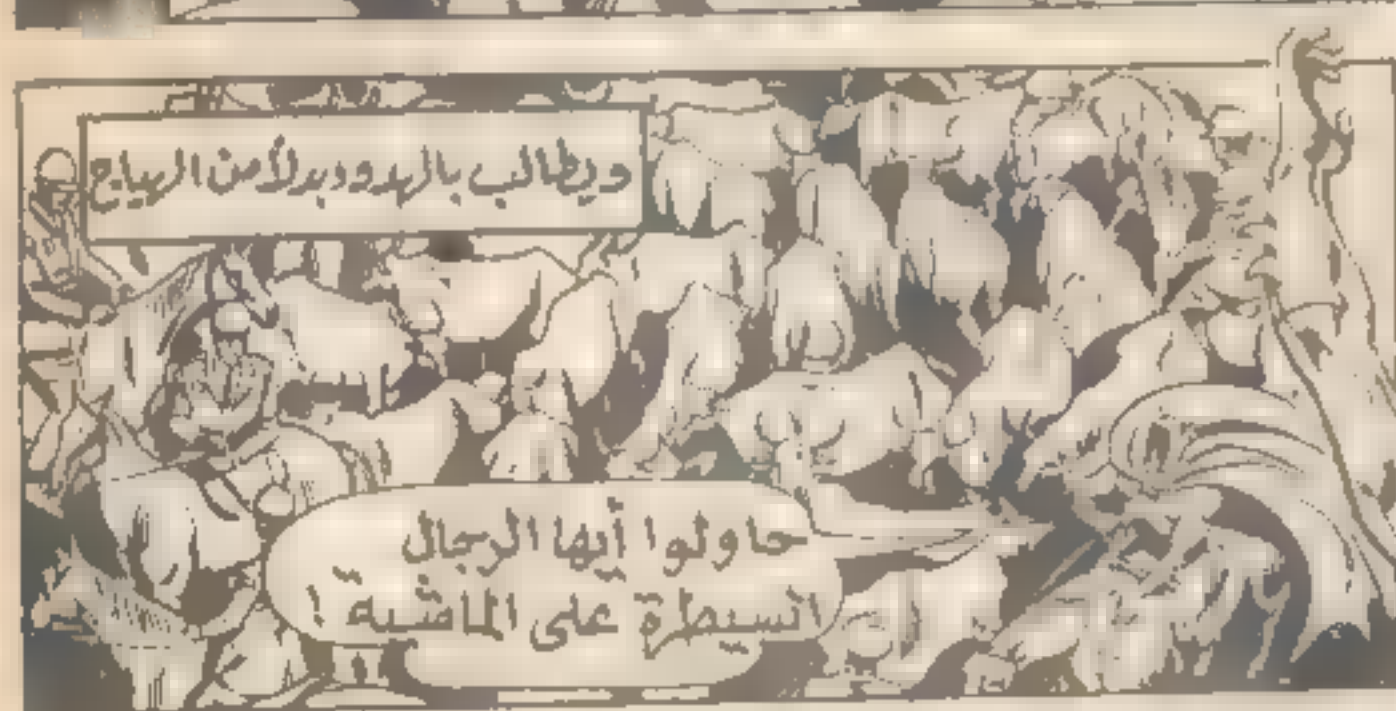 ويطالب بالهدوء بدلاً من الهياج
حاولوا أيها الرجال
السيطرة على الماشية !